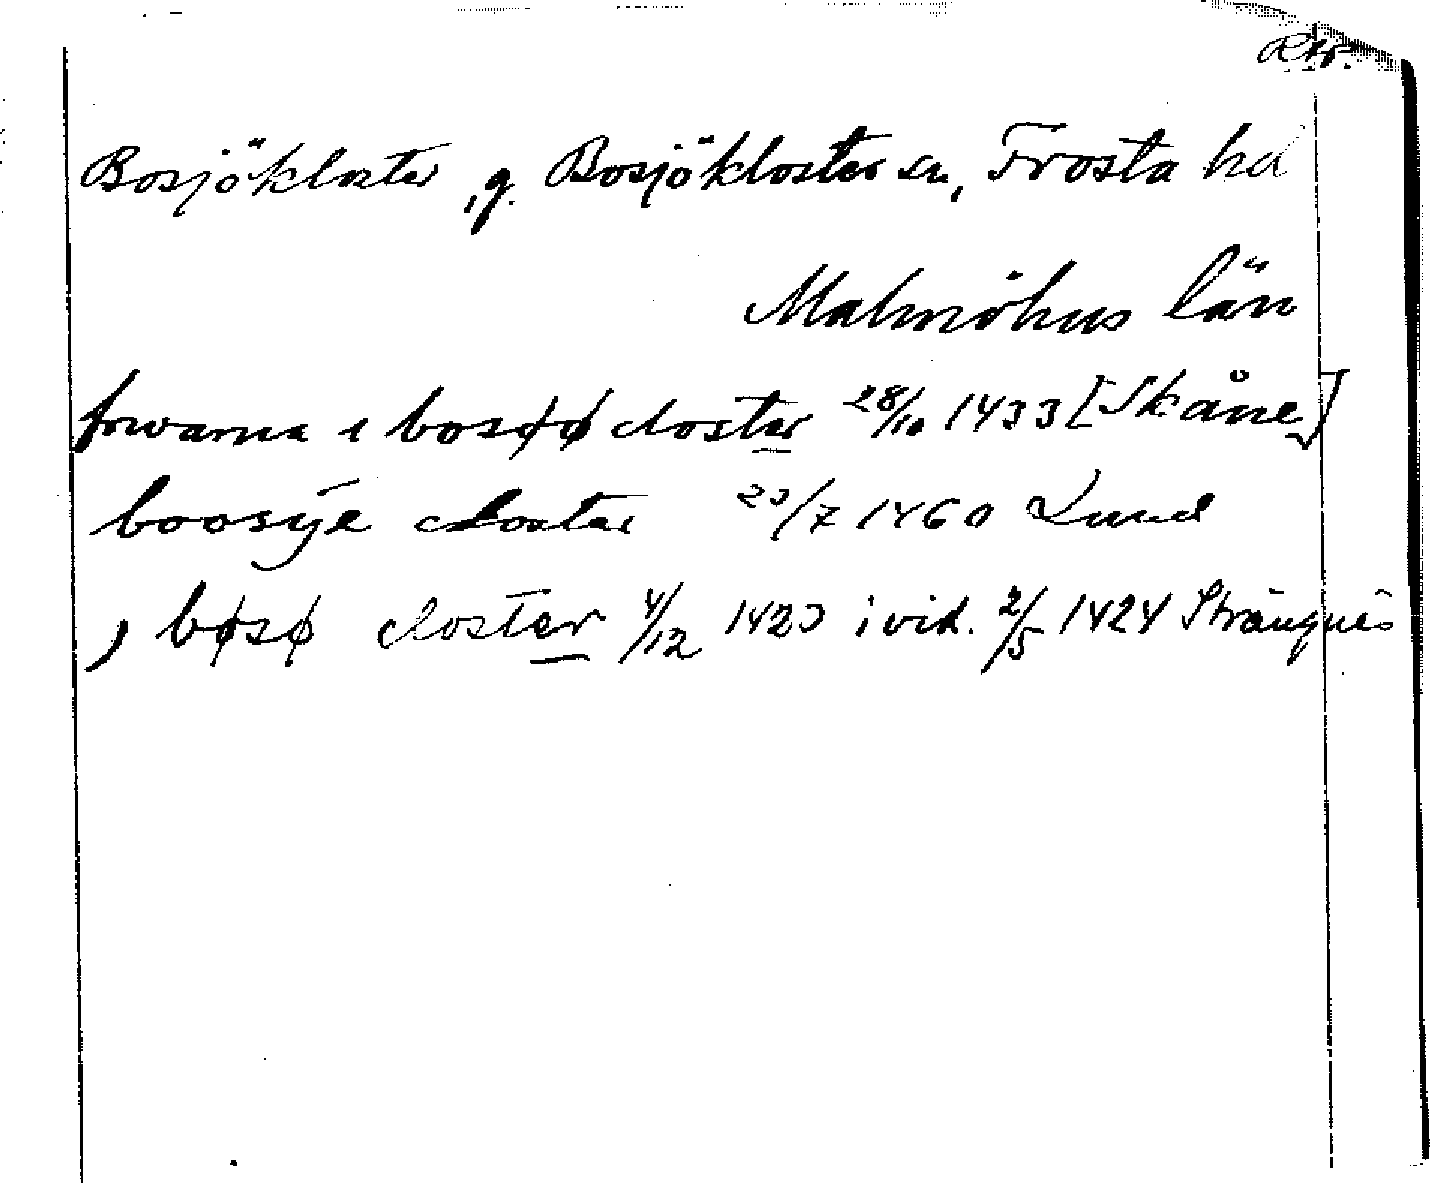 Bosjökloster, g. Bosjökloster sn, Frosta hd
Malmöhus län
forvarne i bosøø closter 28/10 1433 [Skåne]
boosye closter 23/7 1460 Lund
, bøsø closter 4/12 1423 i vid. 2/5 1424 Strängnäs